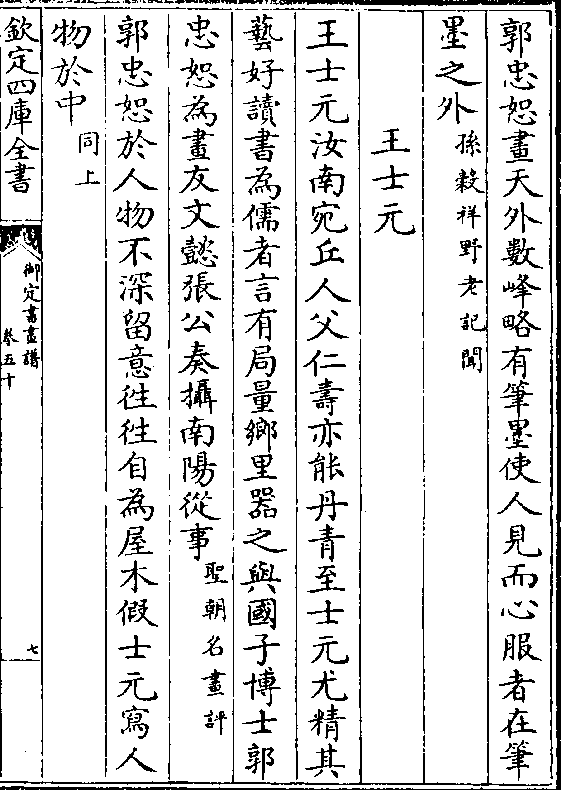 郭忠恕畫天外數峰略有筆墨使人見而心服者在筆
墨之外孫穀祥野老記聞
王士元
王士元汝南宛丘人父仁壽亦能丹青至士元尤精其
藝好讀書為儒者言有局量鄉里器之與國子博士郭
忠恕為畫友文懿張公奏攝南陽從事聖朝名畫評
郭忠恕於人物不深留意徃徃自為屋木假士元寫人
物於中同上
欽定四庫全書
御定書畫譜
卷五十
七